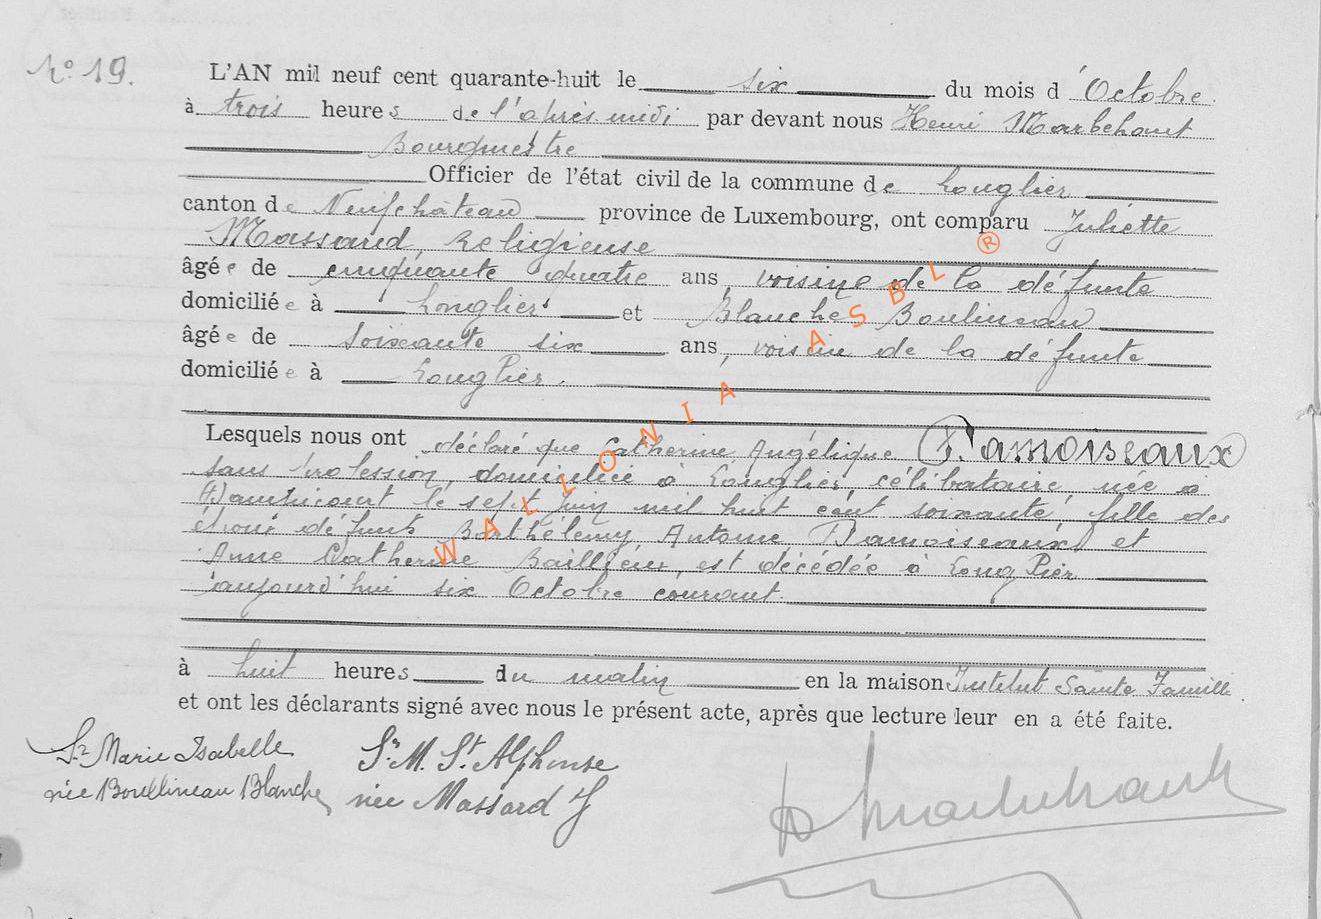 N° 19.
L'AN mil neuf cent quarante-huit le six du mois d'Octobre.
à trois heures de l'après midi par devant nous Henri Marbehant
Bourgmestre
Officier de l'état civil de la commune de Longlier
canton de Neufchâteau province de Luxembourg, ont comparu Juliette
Massard, Religieuse
âgée de cinquante quatre ans, voisine de la défunte
domiciliée à Longlier et Blanche Boulineau
âgée de soixante six ans, voisine de la défunte
domiciliée à Longlier.
Lesquels nous ont déclaré que Catherine Angélique Damoiseaux
sans profession, domiciliée à Longlier, célibataire, née à
le sept juin mil huit cent soixante, fille des
époux défunts Barthélemy Antoine Damoiseaux et
Anne Catherine Baillieux, est décédée à Longlier
aujourd'hui six Octobre courant
à huit heures du matin en la maison Institut Sainte Famille.
et ont les déclarants signé avec nous le présent acte, après que lecture leur en a été faite.
Sr Marie Isabelle
née Boullineau Blanche
Sr. M. St. Alphonse
née Massard J
WALLONIA ASBL ®